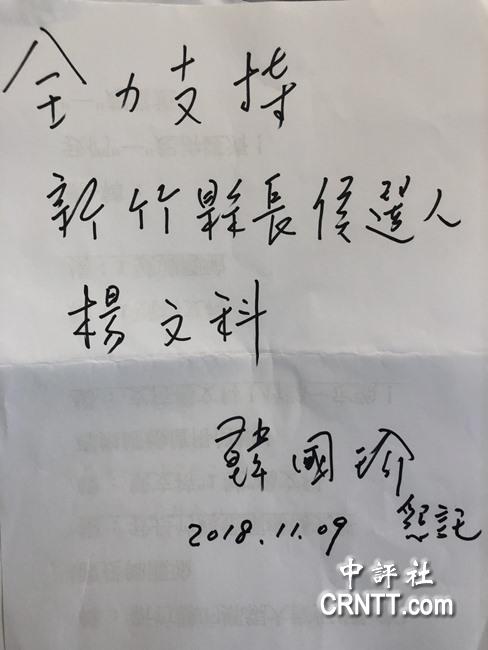 全力支持
新竹縣長候選人
楊文科
韓國瑜
2018.11.09 懇託
中評社
CRNTT.com